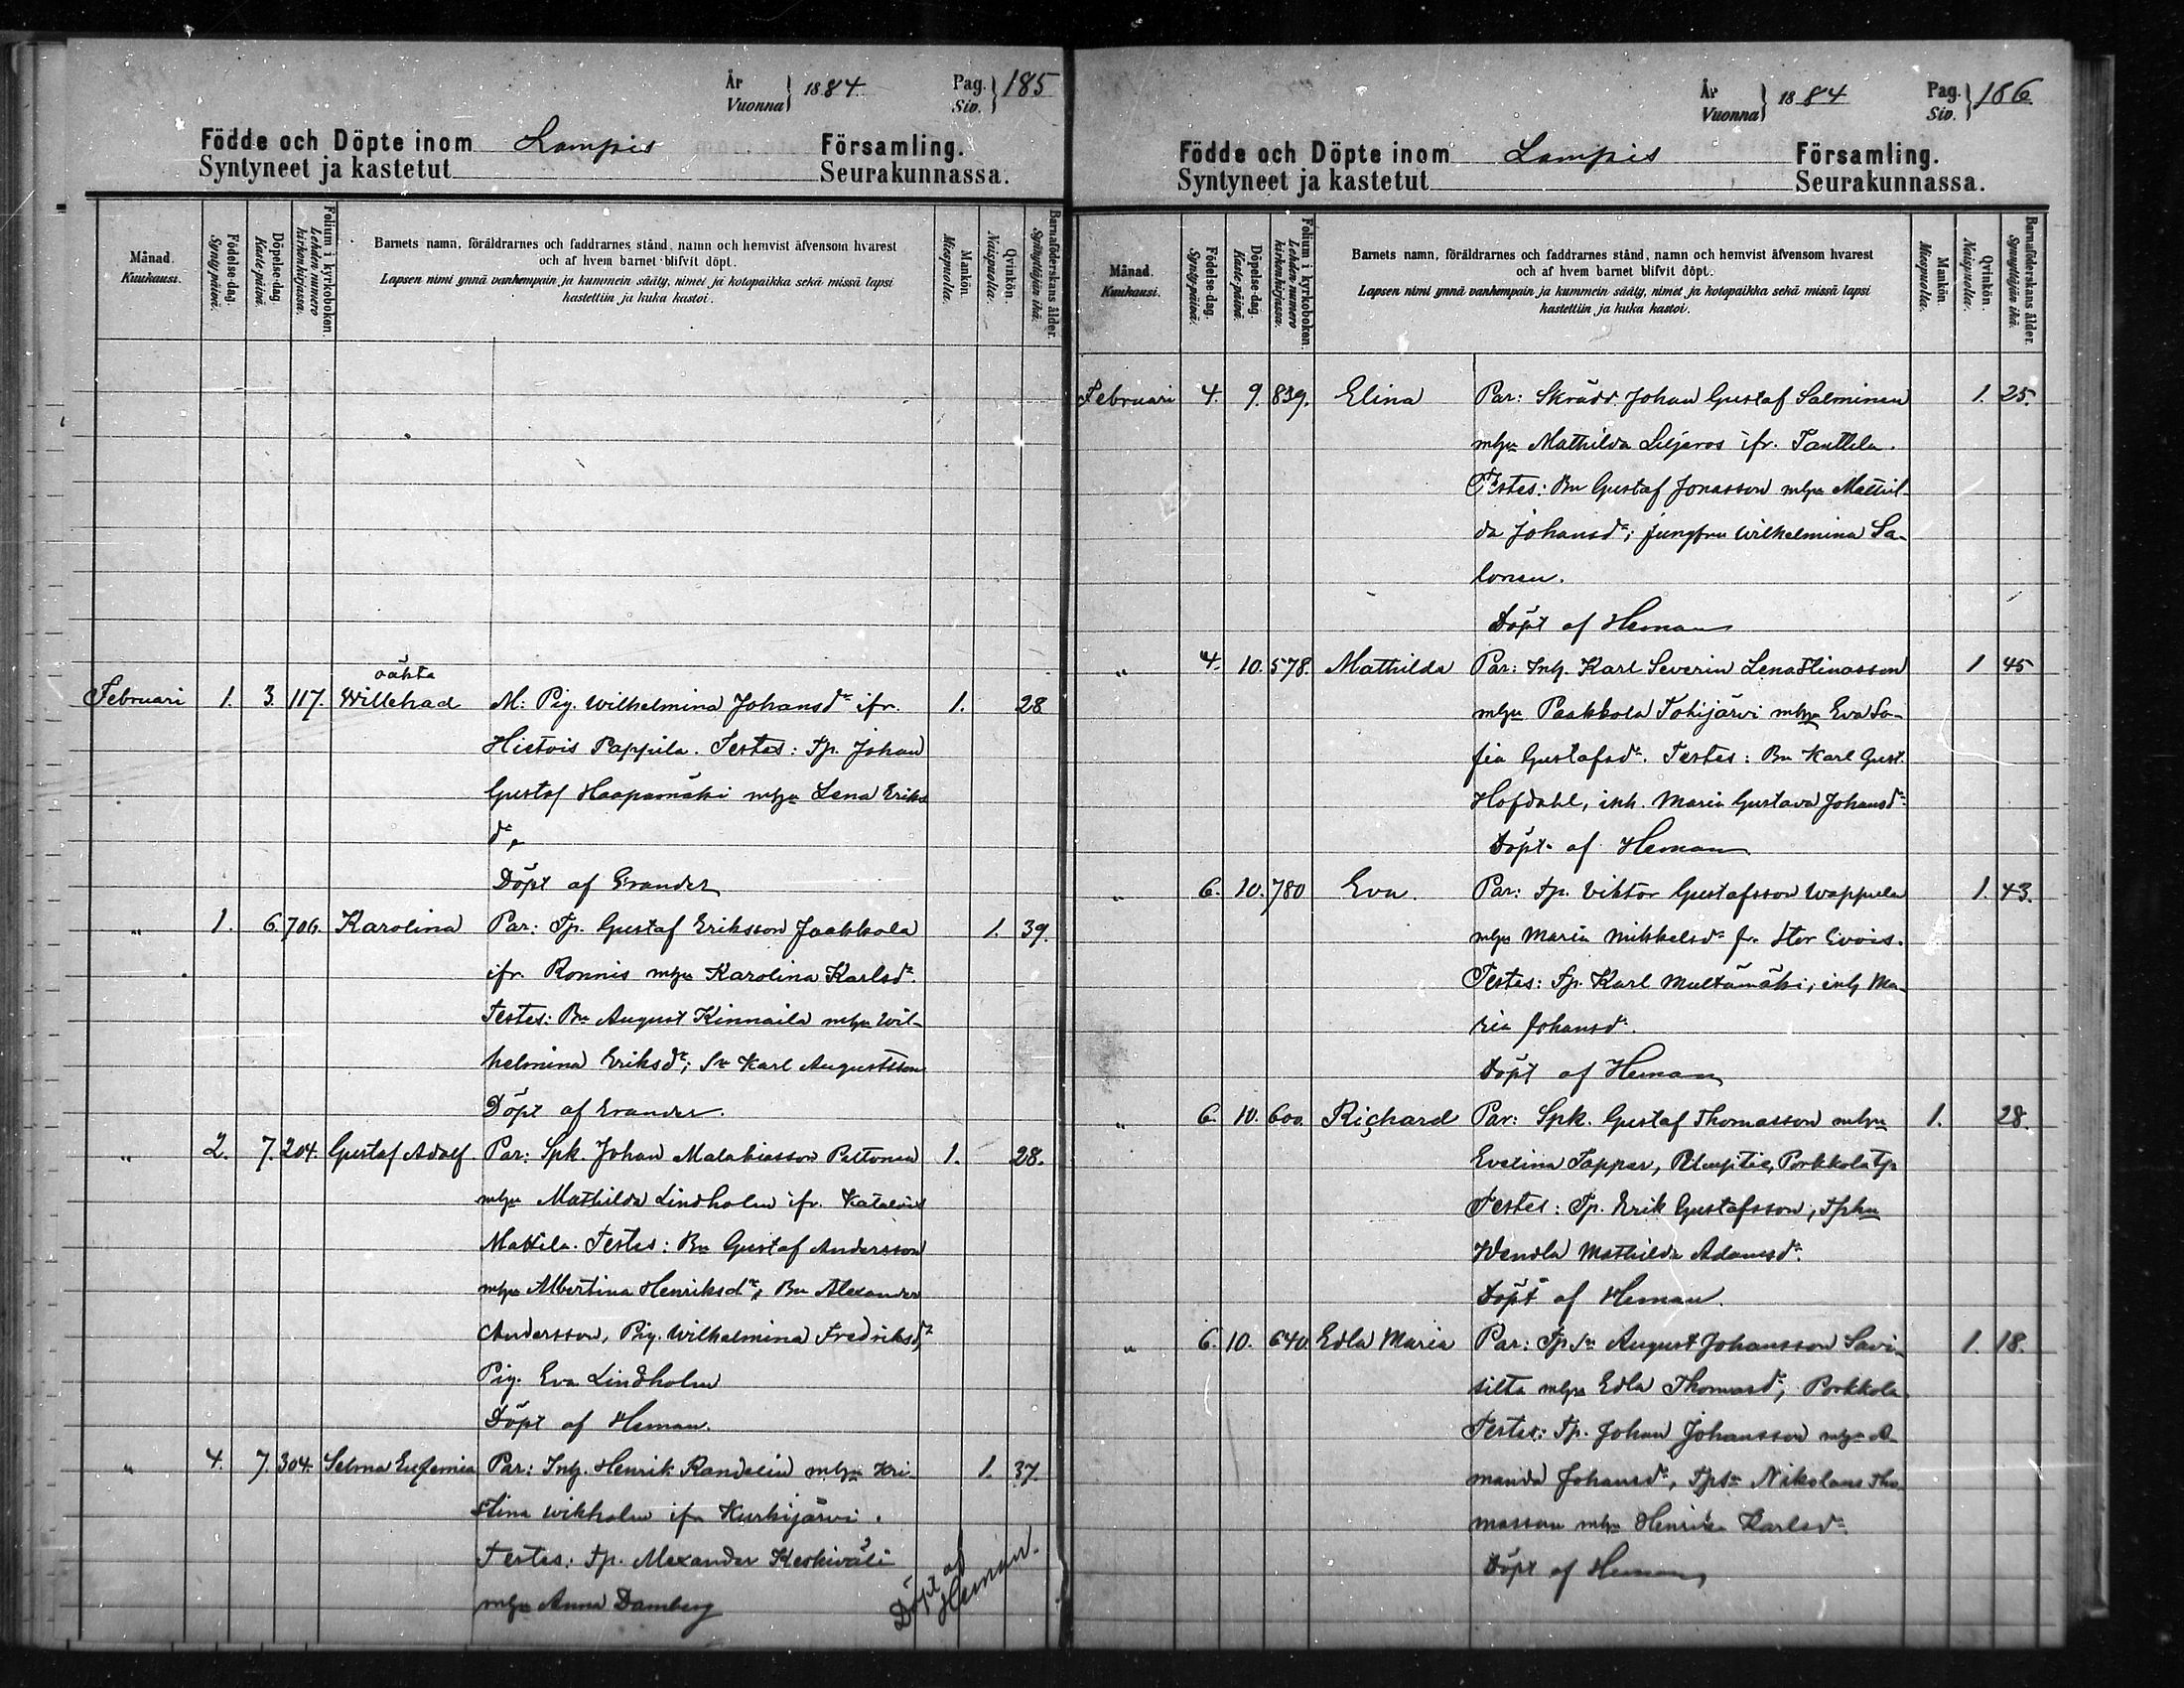 År
Vuonna 1884
Pag.
Siv. 185
Födde och Döpte inom Lampis Församling.
Syntyneet ja kastetut Seurakunnassa.
Månad.
Kuukausi.
Födelse-dag.
Synty-päivä.
Döpelse-dag.
Kaste-päivä.
Folium i kyrkoboken.
Lehden numero
kirkonkirjassa.
Barnets namn, föräldrarnes och faddrarnes stånd, namn och hemvist äfvensom hvarest
och af hvem barnet blifvit döpt.
Lapsen nimi ynnä vanhempain ja kummein sääty, nimet ja kotopaikka sekä missä lapsi
kastettiin ja kuka kastoi.
Mankön.
Miespuolta.
Qvinkön.
Naispuolta.
Barnaföderskans ålder.
Synnyttäjän ikä.
oäkta
Februari 1. 3. 117. Willehad M: Pig. Wilhelmina Johansdr ifr. 1. 28
Hietois Pappila. Testes: Tp. Johan
Gustaf Haapamäki mhu Lena Eriks
dr
Döpt af Evander
" 1. 6. 706. Karolina Par: Tp. Gustaf Eriksson Jaakkola 1. 39.
ifr. Ronnis mhu Karolina Karlsdr.
Testes: Bn August Kinnaila mhu Wil-
helmina Eriksdr; Sn Karl Augustsson
Döpt af Evander.
" 2. 7. 204. Gustaf Adolf. Par: Spk. Johan Malakiasson Peltonen 1. 28.
mhu Mathilda Lindholm ifr. Kataloist
Mattila. Testes: Bn Gustaf Andersson
mhu Albertina Henriksdr, Bn Alexander
Andersson, Pig. Wilhelmina Fredriksdr,
Pig. Eva Lindholm
Döpt af Heman.
" 4. 7. 304. Selma Eufemia Par: Inh. Henrik Randelin mhu Kri- 1. 37.
stina Wikholm ifr Kurkijärvi.
Testes: Tp. Alexander Keskiväli
mhu Anna Damberg
Döpt af
Heman.
År
Vuonna 1884
Pag.
Siv. 186
Födde och Döpte inom Lampis Församling.
Syntyneet ja kastetut Seurakunnassa.
Månad.
Kuukausi.
Födelse-dag.
Synty-päivä.
Döpelse-dag.
Kaste-päivä.
Folium i kyrkoboken.
Lehden numero
kirkonkirjassa.
Barnets namn, föräldrarnes och faddrarnes stånd, namn och hemvist äfvensom hvarest
och af hvem barnet blifvit döpt.
Lapsen nimi ynnä vanhempain ja kummein sääty, nimet ja kotopaikka sekä missä lapsi
kastettiin ja kuka kastoi.
Mankön.
Miespuolta.
Qvinkön.
Naispuolta.
Barnaföderskans ålder.
Synnyttäjän ikä.
Februari 4. 9. 839. Elina Par: Skrädd. Johan Gustaf Salminen 1. 25.
mhu Mathilda Liljeros ifr. Tanttila.
Testes: Bn Gustaf Jonasson mhu Mathil-
da Johansdr; jungfru Wilhelmina Sa-
lonen.
Döpt af Heman
" 4. 10. 578. Mathilda Par: Inh. Karl Severin LenaStinasson 1 45
mhu Paakkola Tohijärvi mhu Eva So-
fia Gustafsdr. Testes: Bn Karl Gust.
Hofdahl, inh. Maria Gustava Johansdr
Döpt af Heman
" 6. 10. 780 Eva. Par: Tp. Viktor Gustafsson Wappula 1. 43.
mhu Maria Mikkelsdr fr. Stor Evois.
Testes: Tp. Karl Multamäki, inh Ma-
ria Johansdr.
Döpt af Heman
" 6. 10. 600. Richard Par: Spk. Gustaf Thomasson mhu 1. 28.
Evelina Tapper, Porkkola
Testes: Tp. Erik Gustafsson, Tphu
Wendla Mathilda Adamsdr.
Döpt af Heman.
" 6. 10. 640 Edla Maria Par: Tp Sn August Johansson Savi- 1. 18.
silta mhu Edla Thomasdr, Porkkola
Testes: Tp. Johan Johansson mhu A-
manda Johansdr, TpSn Nikolaus Tho-
masson mhu Henrika Karlsdr.
Döpt af Heman